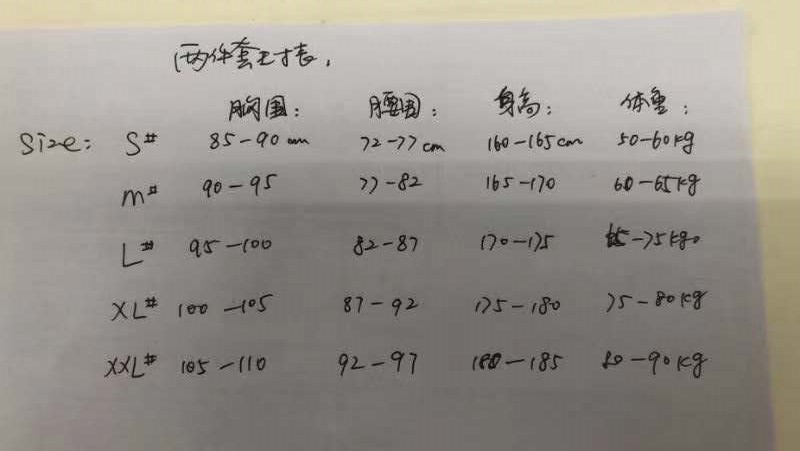 两件套尺寸表,
胸围: 腰围: 身高: 体重:
Size: S# 85-90cm 72-77cm 160-165cm 50-60kg
m# 90-95 77-82 165-170 60-65kg
L# 95-100 82-87 170-175 65-75kg
XL# 100-105 87-92 175-180 75-80kg
XXL# 105-110 92-97 180-185 80-90kg